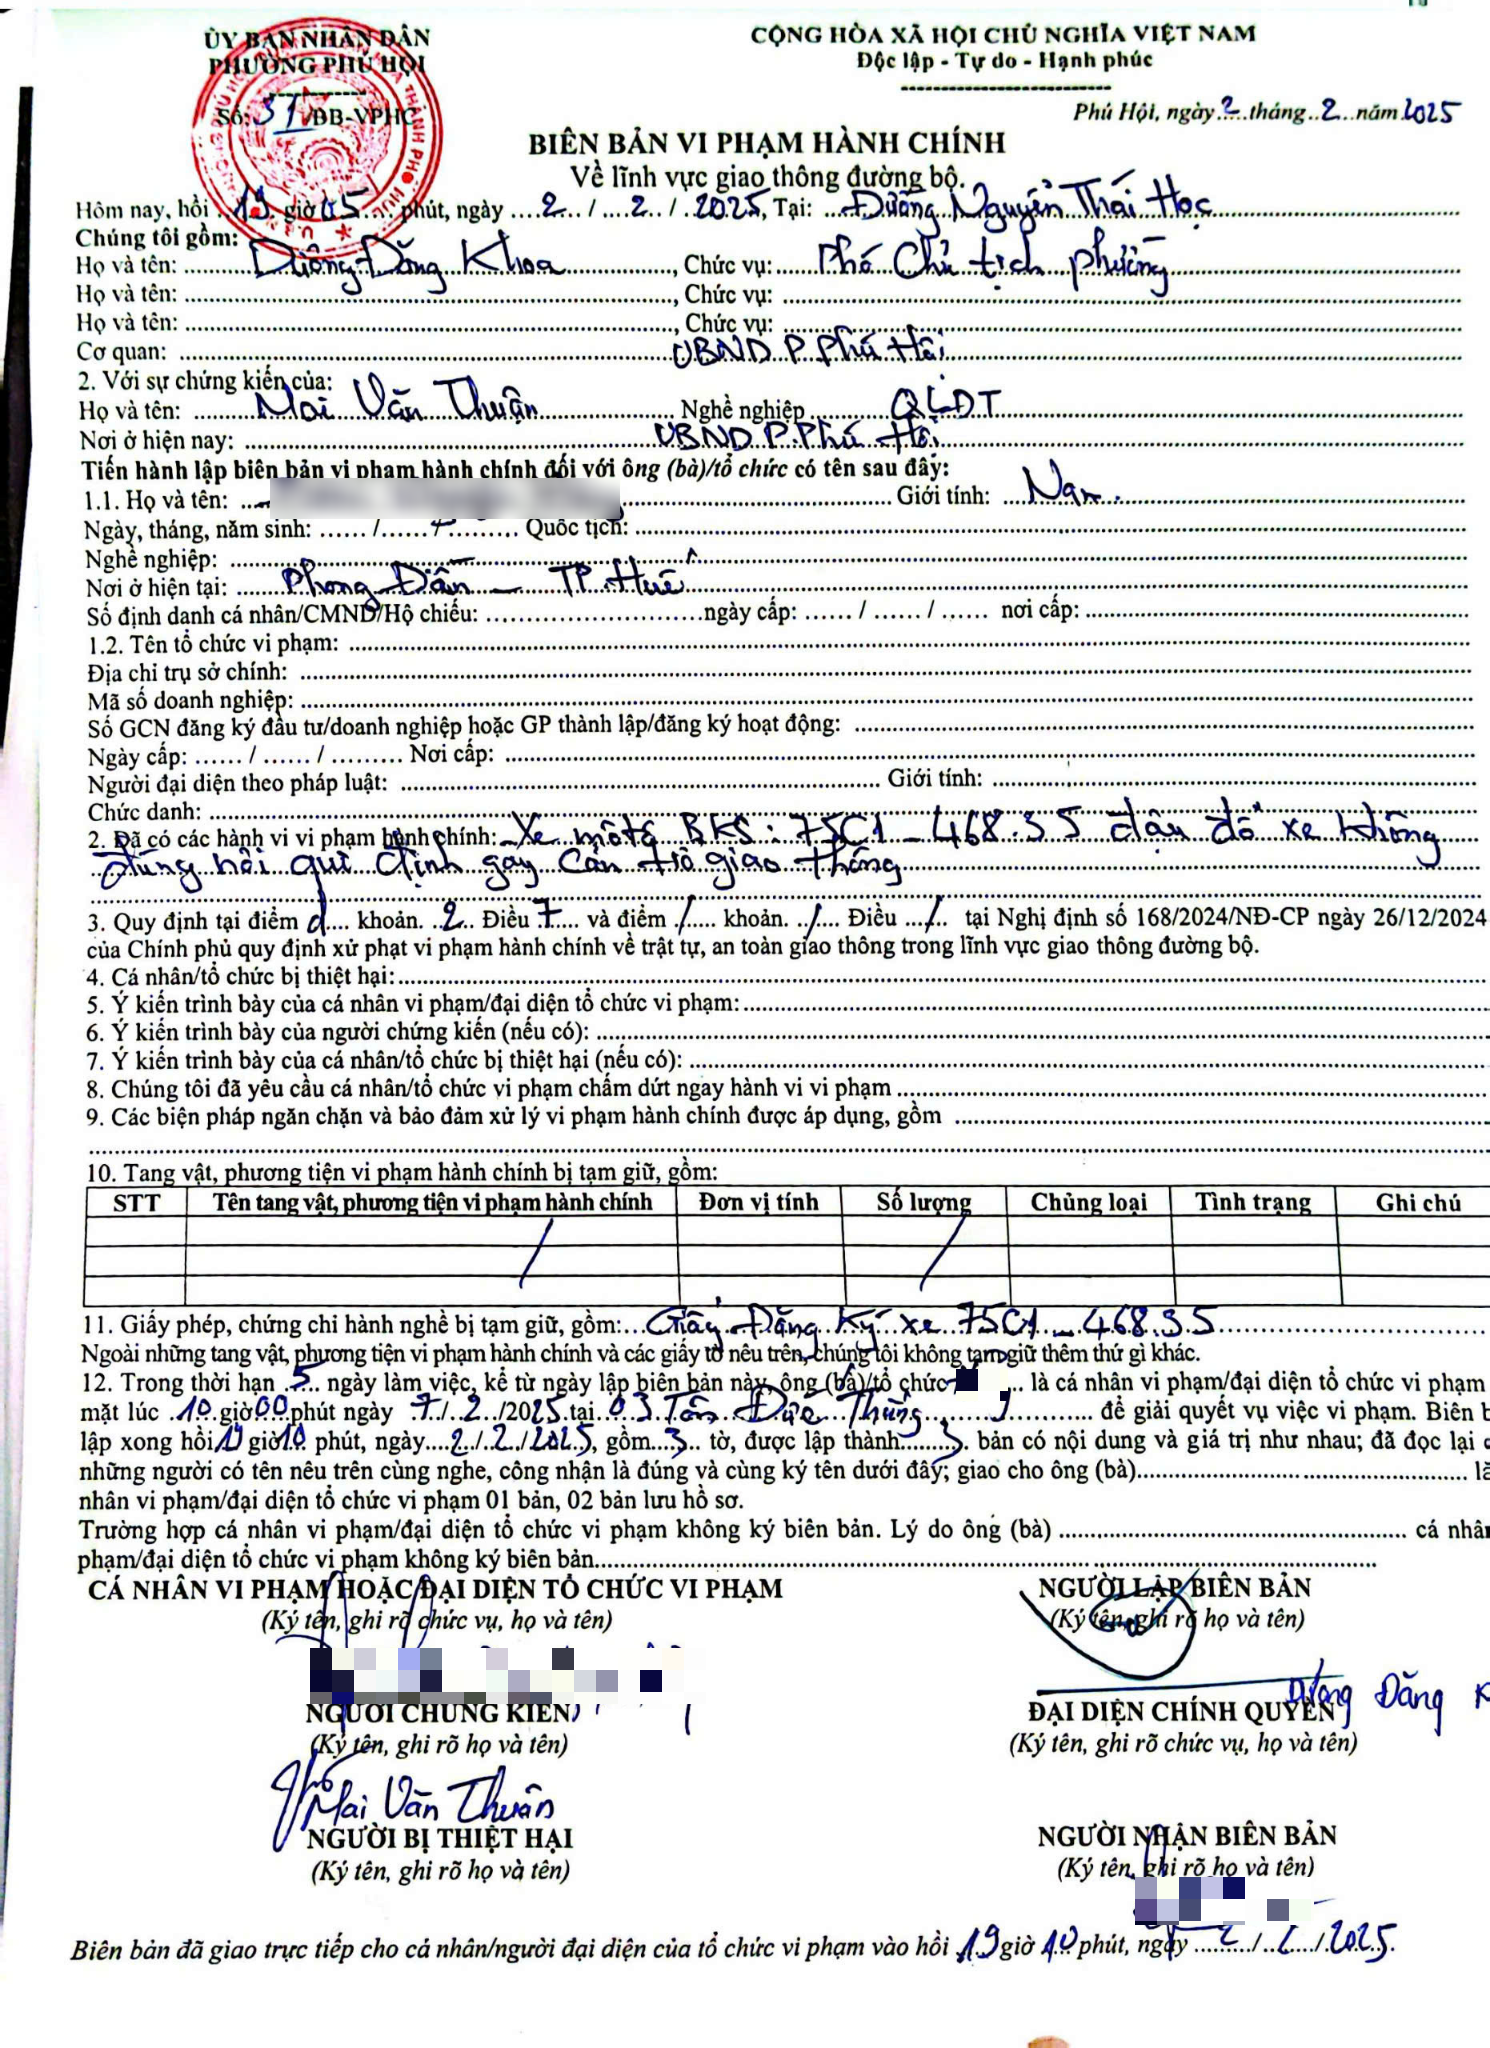 ỦY BAN NHÂN DÂN
PHƯỜNG PHÚ HỘI
CỘNG HÒA XÃ HỘI CHỦ NGHĨA VIỆT NAM
Độc lập - Tự do - Hạnh phúc
Số: 31/BB-VPHC
Phú Hội, ngày 2 tháng 2 năm 2025
BIÊN BẢN VI PHẠM HÀNH CHÍNH
Về lĩnh vực giao thông đường bộ.
Hôm nay, hồi 19 giờ 05 phút, ngày 2 / 2 / 2025, Tại: Đường Nguyễn Thái Học
Chúng tôi gồm:
Họ và tên: Dương Đăng Khoa, Chức vụ: Phó Chủ tịch phường
Họ và tên: , Chức vụ:
Họ và tên: , Chức vụ:
Cơ quan: UBND P Phú Hội
2. Với sự chứng kiến của:
Họ và tên: Mai Văn Thuận Nghề nghiệp QLĐT
Nơi ở hiện nay: UBND P.Phú Hội
Tiến hành lập biên bản vi phạm hành chính đối với ông (bà)/tổ chức có tên sau đây:
1.1. Họ và tên: Giới tính: Nam.
Ngày, tháng, năm sinh: / / Quốc tịch:
Nghề nghiệp:
Nơi ở hiện tại: Phong Điền - TP.Huế
Số định danh cá nhân/CMND/Hộ chiếu: ngày cấp: / / nơi cấp:
1.2. Tên tổ chức vi phạm:
Địa chỉ trụ sở chính:
Mã số doanh nghiệp:
Số GCN đăng ký đầu tư/doanh nghiệp hoặc GP thành lập/đăng ký hoạt động:
Ngày cấp: / / Nơi cấp:
Người đại diện theo pháp luật: Giới tính:
Chức danh:
2. Đã có các hành vi vi phạm hành chính: Xe môtô BKS: 75C1 - 468.35 đậu đỗ xe không
đúng nơi qui định gây cản trở giao thông
3. Quy định tại điểm d khoản 2 Điều 7 và điểm / khoản / Điều / tại Nghị định số 168/2024/NĐ-CP ngày 26/12/2024
của Chính phủ quy định xử phạt vi phạm hành chính về trật tự, an toàn giao thông trong lĩnh vực giao thông đường bộ.
4. Cá nhân/tổ chức bị thiệt hại:
5. Ý kiến trình bày của cá nhân vi phạm/đại diện tổ chức vi phạm:
6. Ý kiến trình bày của người chứng kiến (nếu có):
7. Ý kiến trình bày của cá nhân/tổ chức bị thiệt hại (nếu có):
8. Chúng tôi đã yêu cầu cá nhân/tổ chức vi phạm chấm dứt ngay hành vi vi phạm
9. Các biện pháp ngăn chặn và bảo đảm xử lý vi phạm hành chính được áp dụng, gồm
10. Tang vật, phương tiện vi phạm hành chính bị tạm giữ, gồm:
STT Tên tang vật, phương tiện vi phạm hành chính Đơn vị tính Số lượng Chủng loại Tình trạng Ghi chú
11. Giấy phép, chứng chỉ hành nghề bị tạm giữ, gồm: Giấy Đăng ký xe 75C1 - 468.35
Ngoài những tang vật, phương tiện vi phạm hành chính và các giấy tờ nêu trên, chúng tôi không tạm giữ thêm thứ gì khác.
12. Trong thời hạn 5 ngày làm việc, kể từ ngày lập biên bản này, ông (bà)/tổ chức là cá nhân vi phạm/đại diện tổ chức vi phạm
mặt lúc 10 giờ 00 phút ngày 7/ 2 /2025 tại 03 Tôn Đức Thắng để giải quyết vụ việc vi phạm. Biên b
lập xong hồi 19 giờ 10 phút, ngày 2/ 2/ 2025, gồm 3 tờ, được lập thành 3 bản có nội dung và giá trị như nhau; đã đọc lại c
những người có tên nêu trên cùng nghe, công nhận là đúng và cùng ký tên dưới đây; giao cho ông (bà) là
nhân vi phạm/đại diện tổ chức vi phạm 01 bản, 02 bản lưu hồ sơ.
Trường hợp cá nhân vi phạm/đại diện tổ chức vi phạm không ký biên bản. Lý do ông (bà) cá nhân
phạm/đại diện tổ chức vi phạm không ký biên bản
CÁ NHÂN VI PHẠM HOẶC ĐẠI DIỆN TỔ CHỨC VI PHẠM
(Ký tên, ghi rõ chức vụ, họ và tên)
NGƯỜI LẬP BIÊN BẢN
(Ký tên, ghi rõ họ và tên)
Dương Đăng K
NGƯỜI CHỨNG KIẾN
(Ký tên, ghi rõ họ và tên)
Mai Văn Thuận
ĐẠI DIỆN CHÍNH QUYỀN
(Ký tên, ghi rõ chức vụ, họ và tên)
NGƯỜI BỊ THIỆT HẠI
(Ký tên, ghi rõ họ và tên)
NGƯỜI NHẬN BIÊN BẢN
(Ký tên, ghi rõ họ và tên)
Biên bản đã giao trực tiếp cho cá nhân/người đại diện của tổ chức vi phạm vào hồi 19 giờ 10 phút, ngày 2/ 2/ 2025.